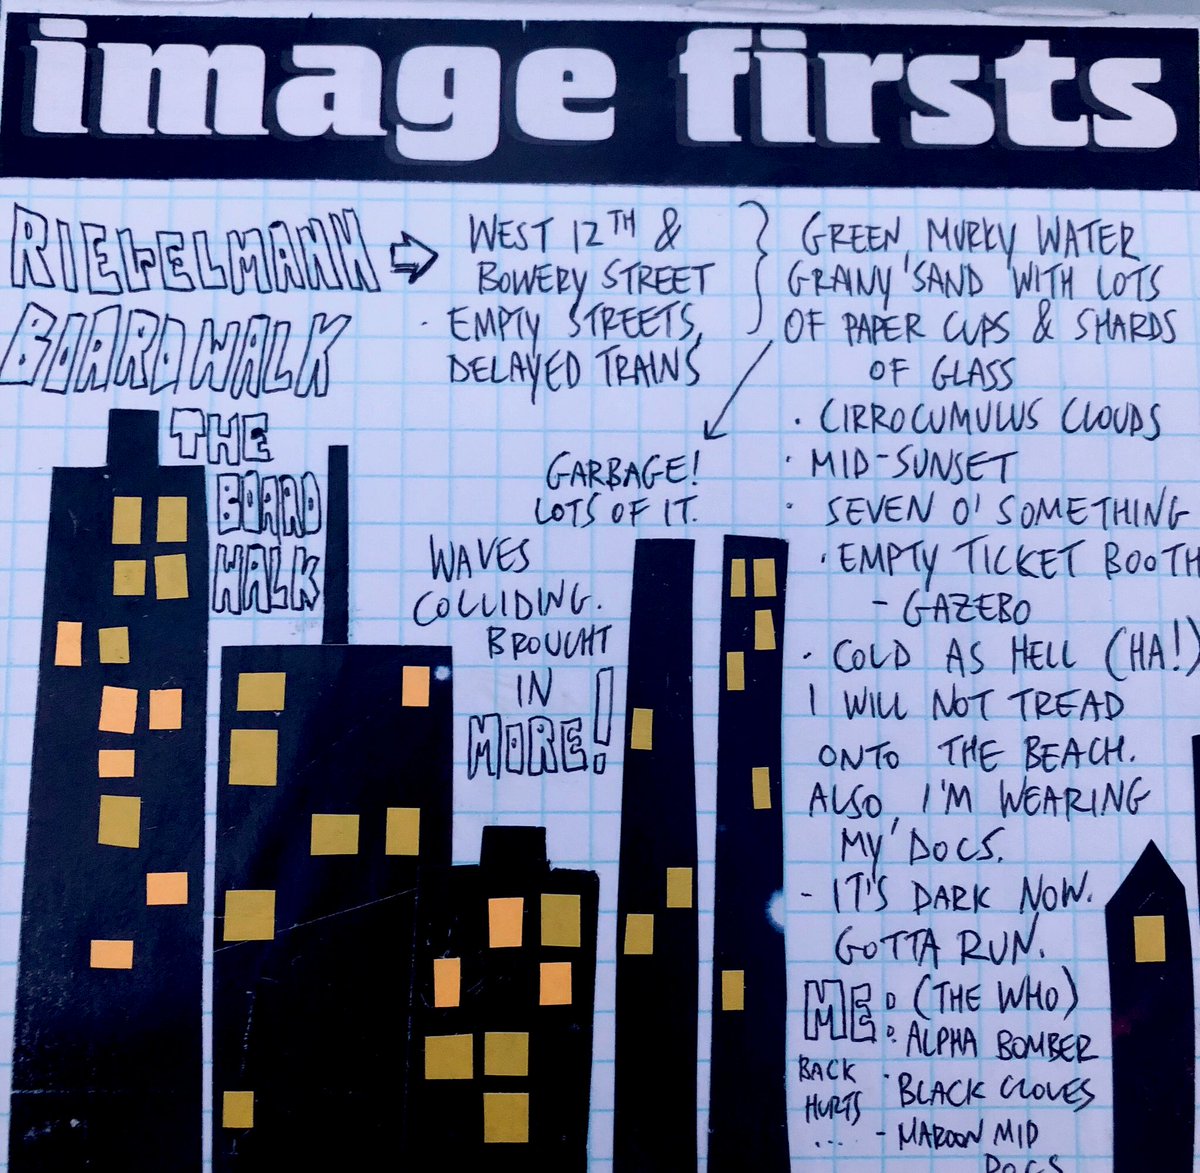 image firsts
RIEGELMANN
BOARDWALK
THE
BOARD
WALK
WEST 12TH &
BOWERY STREET
· EMPTY STREETS,
DELAYED TRAINS
GARBAGE!
LOTS OF IT.
WAVES
COLLIDING.
BROUGHT
IN
MORE!
GREEN, MURKY WATER
GRAINY SAND WITH LOTS
OF PAPER CUPS & SHARDS
OF GLASS
· CIRROCUMULUS CLOUDS
· MID-SUNSET
· SEVEN O'SOMETHING
· EMPTY TICKET BOOTH
- GAZEBO
· COLD AS HELL (HA!)
I WILL NOT TREAD
ONTO THE BEACH.
ALSO, I'M WEARING
MY DOCS.
- IT'S DARK NOW.
GOTTA RUN.
ME: (THE WHO)
· ALPHA BOMBER
BACK
HURTS
....
· BLACK GLOVES
- MAROON MID
DOCS